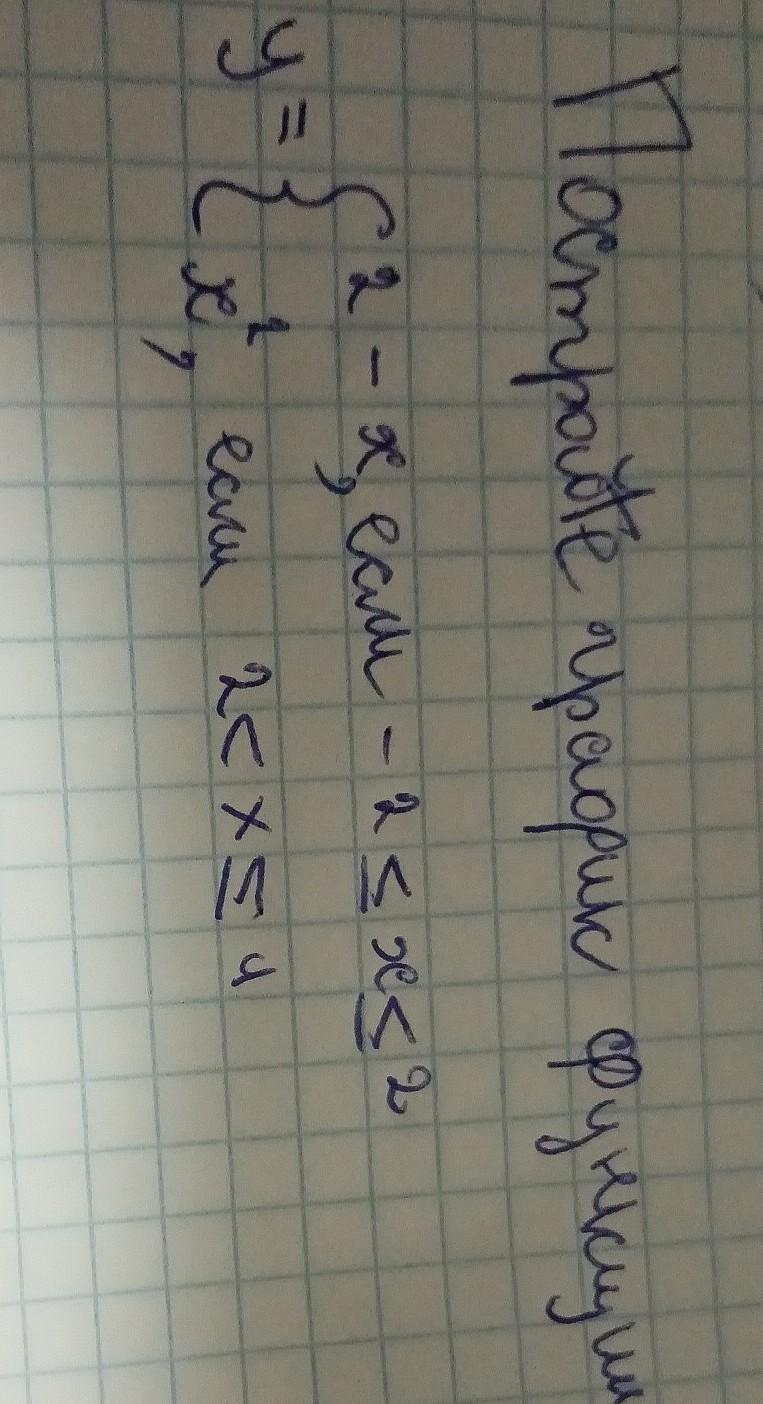 Постройте график функции
y = { 2 - x, если - 2 ≤ x ≤ 2
x², если 2 < x ≤ 4